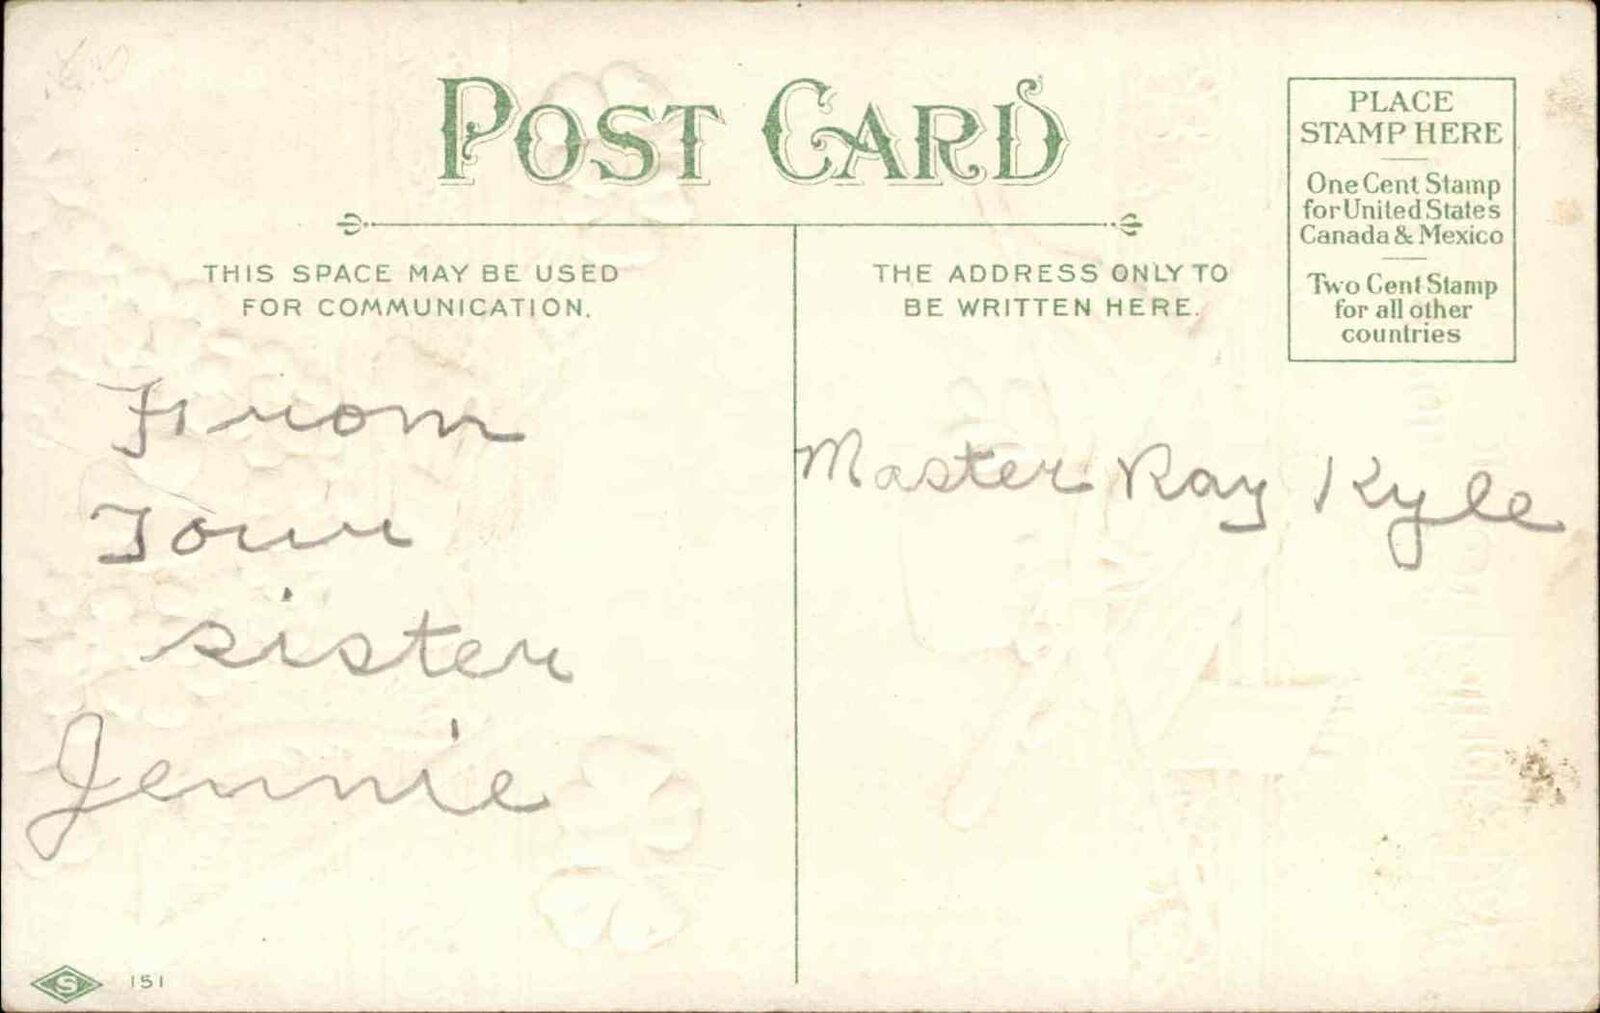 POST CARD
PLACE
STAMP HERE
One Cent Stamp
for United States
Canada & Mexico
Two Cent Stamp
for all other
countries
THIS SPACE MAY BE USED
FOR COMMUNICATION.
THE ADDRESS ONLY TO
BE WRITTEN HERE.
From
Your
sister
Jennie
Master Ray Kyle
S 151